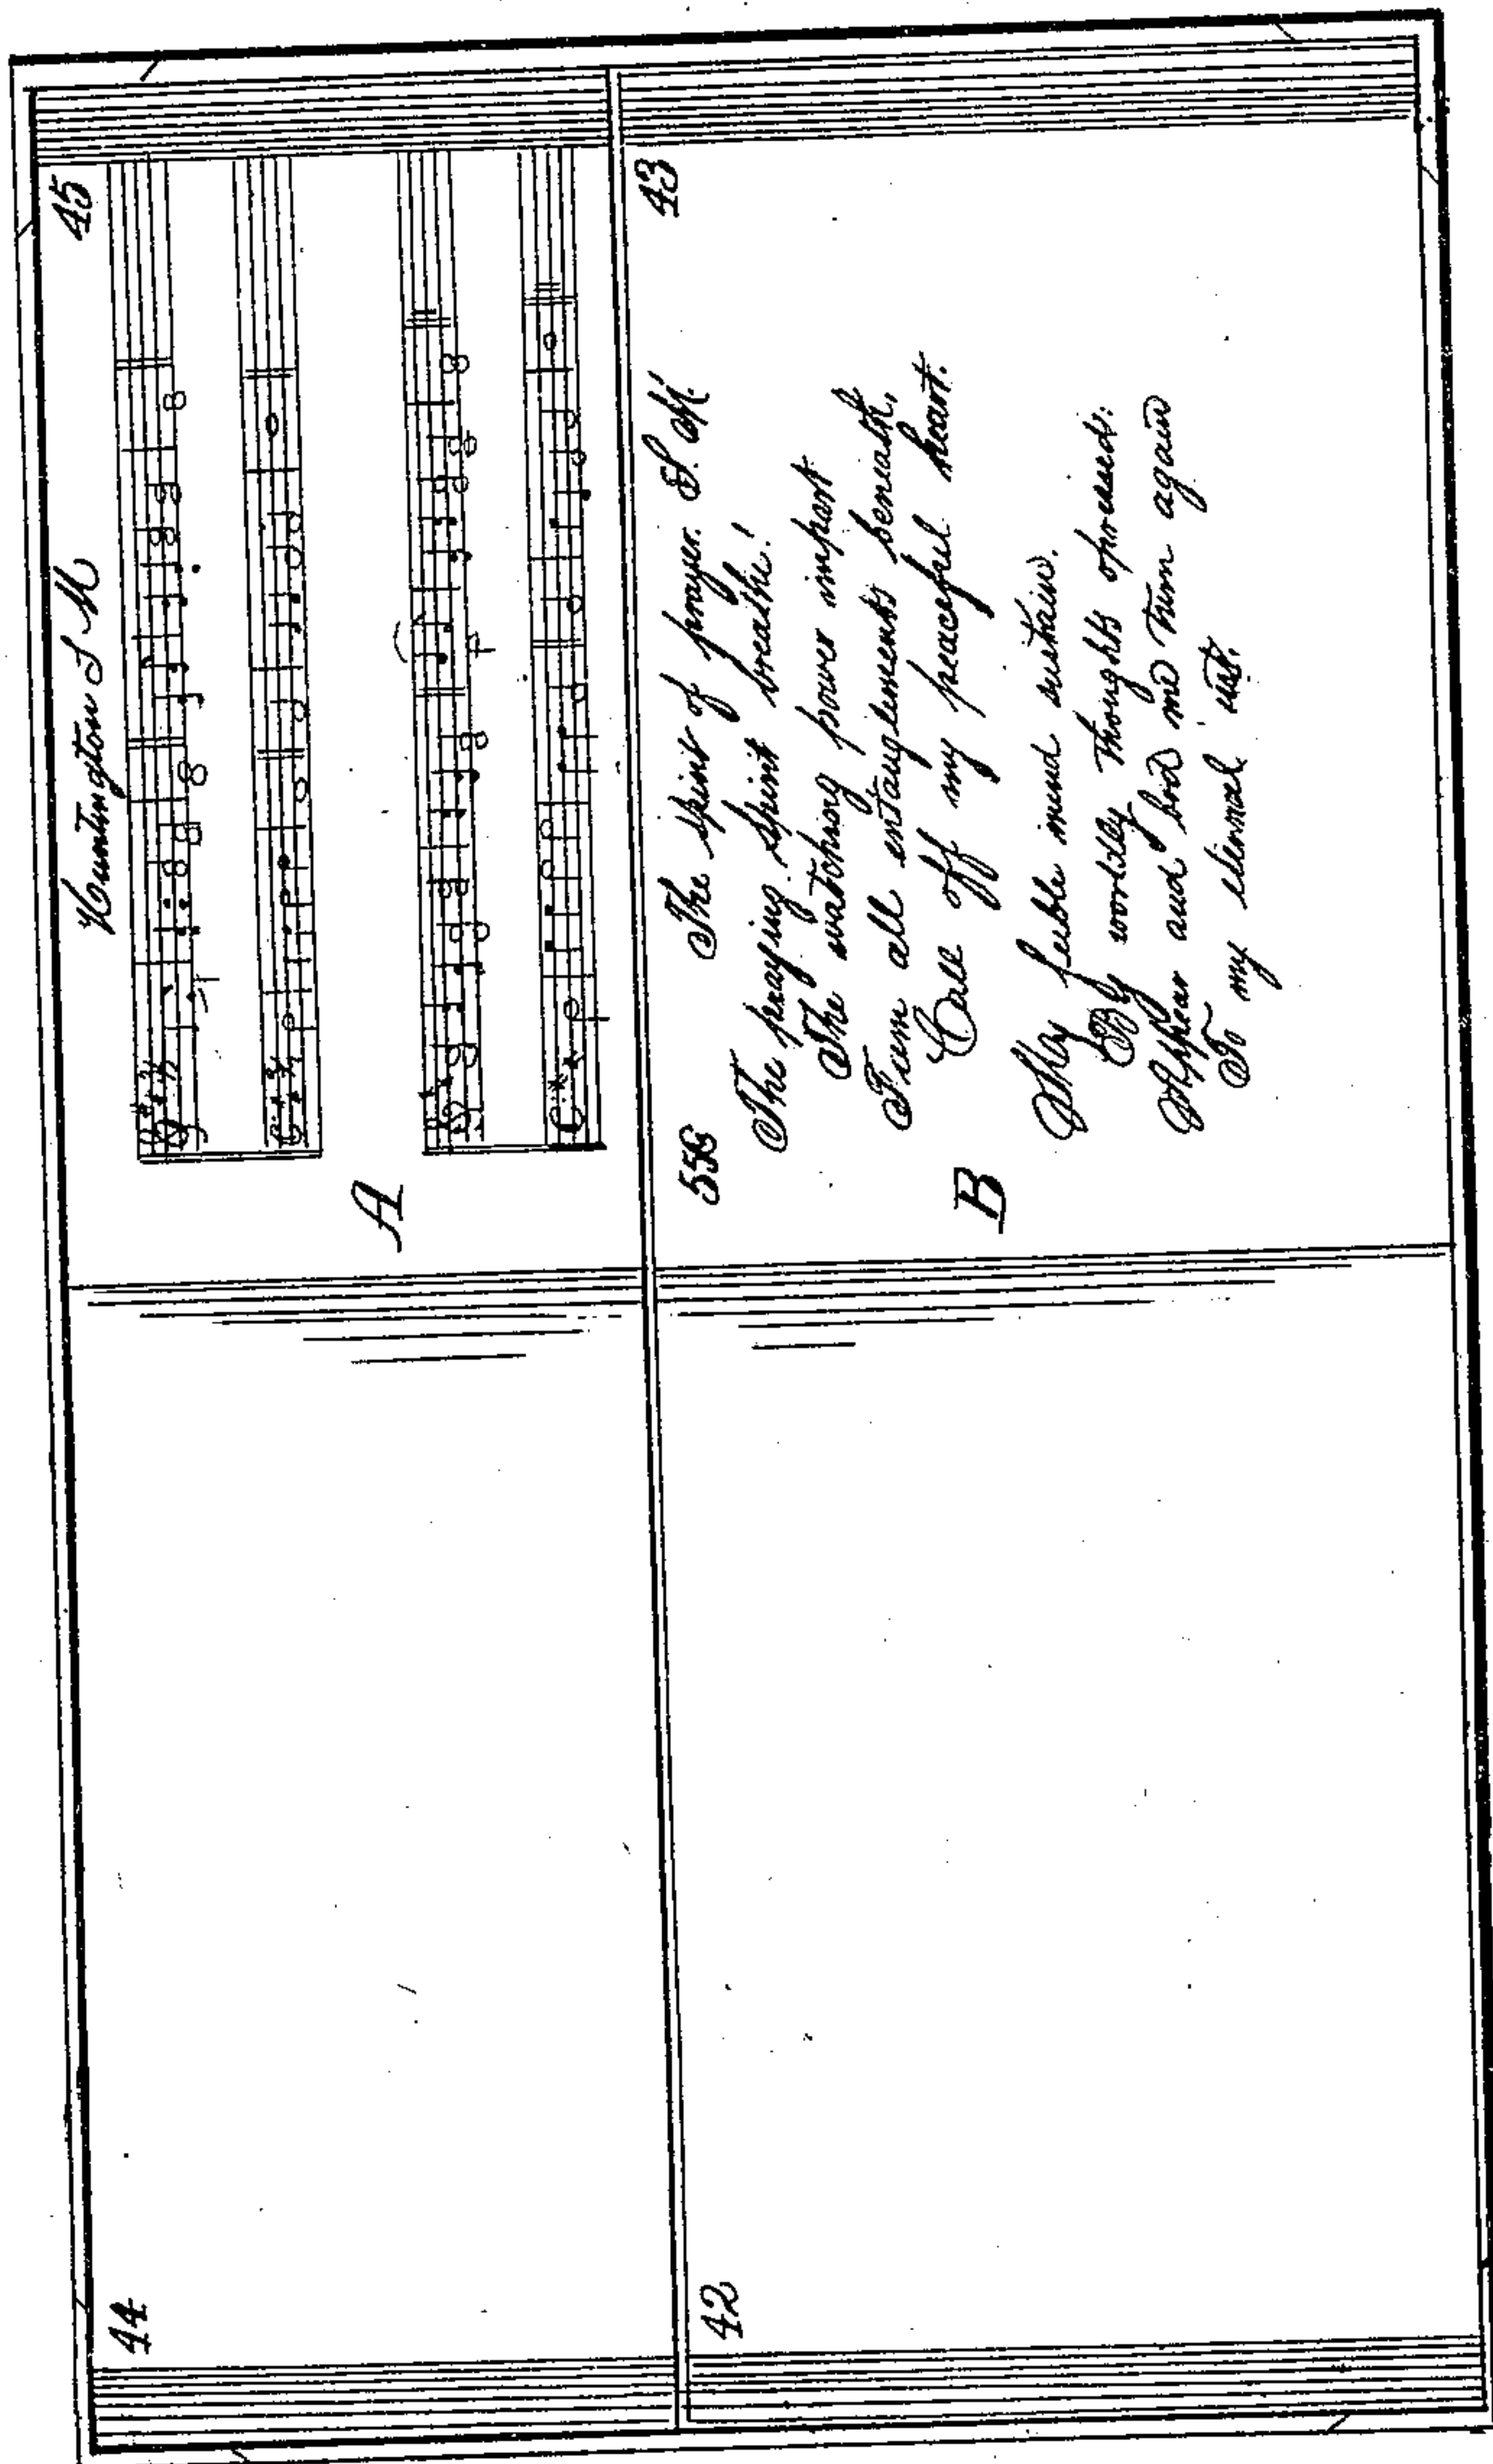 44
45
Huntington S M
A
42
43
556 The spirit of prayer. S. M.
The praying spirit breathe!
The watching power impart
From all entanglements beneath,
Call off my peaceful heart.
B
My feeble mind sustain.
By worldly thoughts oppressed:
Appear and bid me turn again
To my eternal rest.